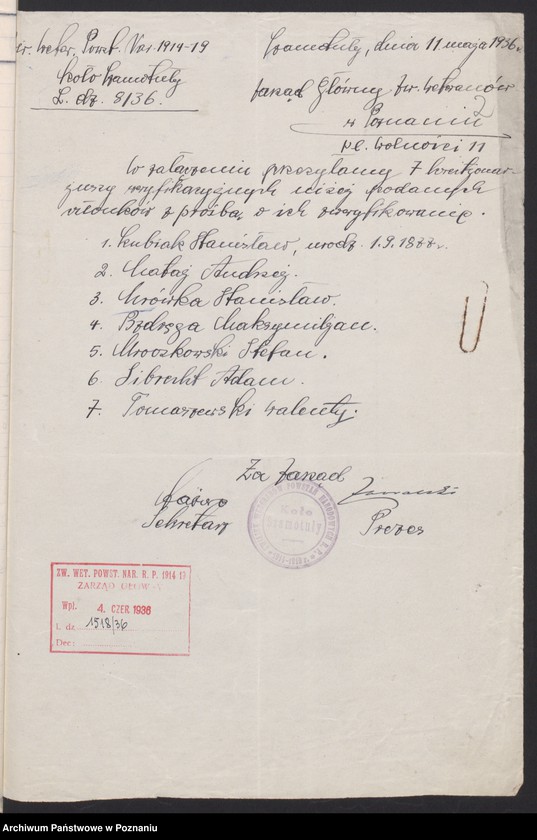 Zw. Weter. Powst. Nar. 1914-19
Szamotuły, dnia 11 maja 1936.
Koło Szamotuły
L. dz. 8/36.
Zarząd Główny Zw. Weteranów
2
w Poznaniu
Pl. Wolności 11
W załączeniu przesyłamy 7 kwestjonar-
juszy weryfikacyjnych niżej podanych
członków z prośbą o ich zweryfikowanie.
1. Kubiak Stanisław, urodz. 1.9.1877r.
2. Mataj Andrzej.
3. Mrówka Stanisław.
4. Maksymiljan.
5. Mroczkowski Stefan.
6. Librecht Adam.
7. Tomaszewski Walenty.
Za Zarząd
Sekretarz
Prezes
Koło
Szamotuły
ZW. WET. POWST. NAR. R. P. 1914-19
ZARZĄD GŁÓWNY
Wpl. 4. CZER 1936
L. dz. 1518/36
Dec:
Archiwum Państwowe w Poznaniu